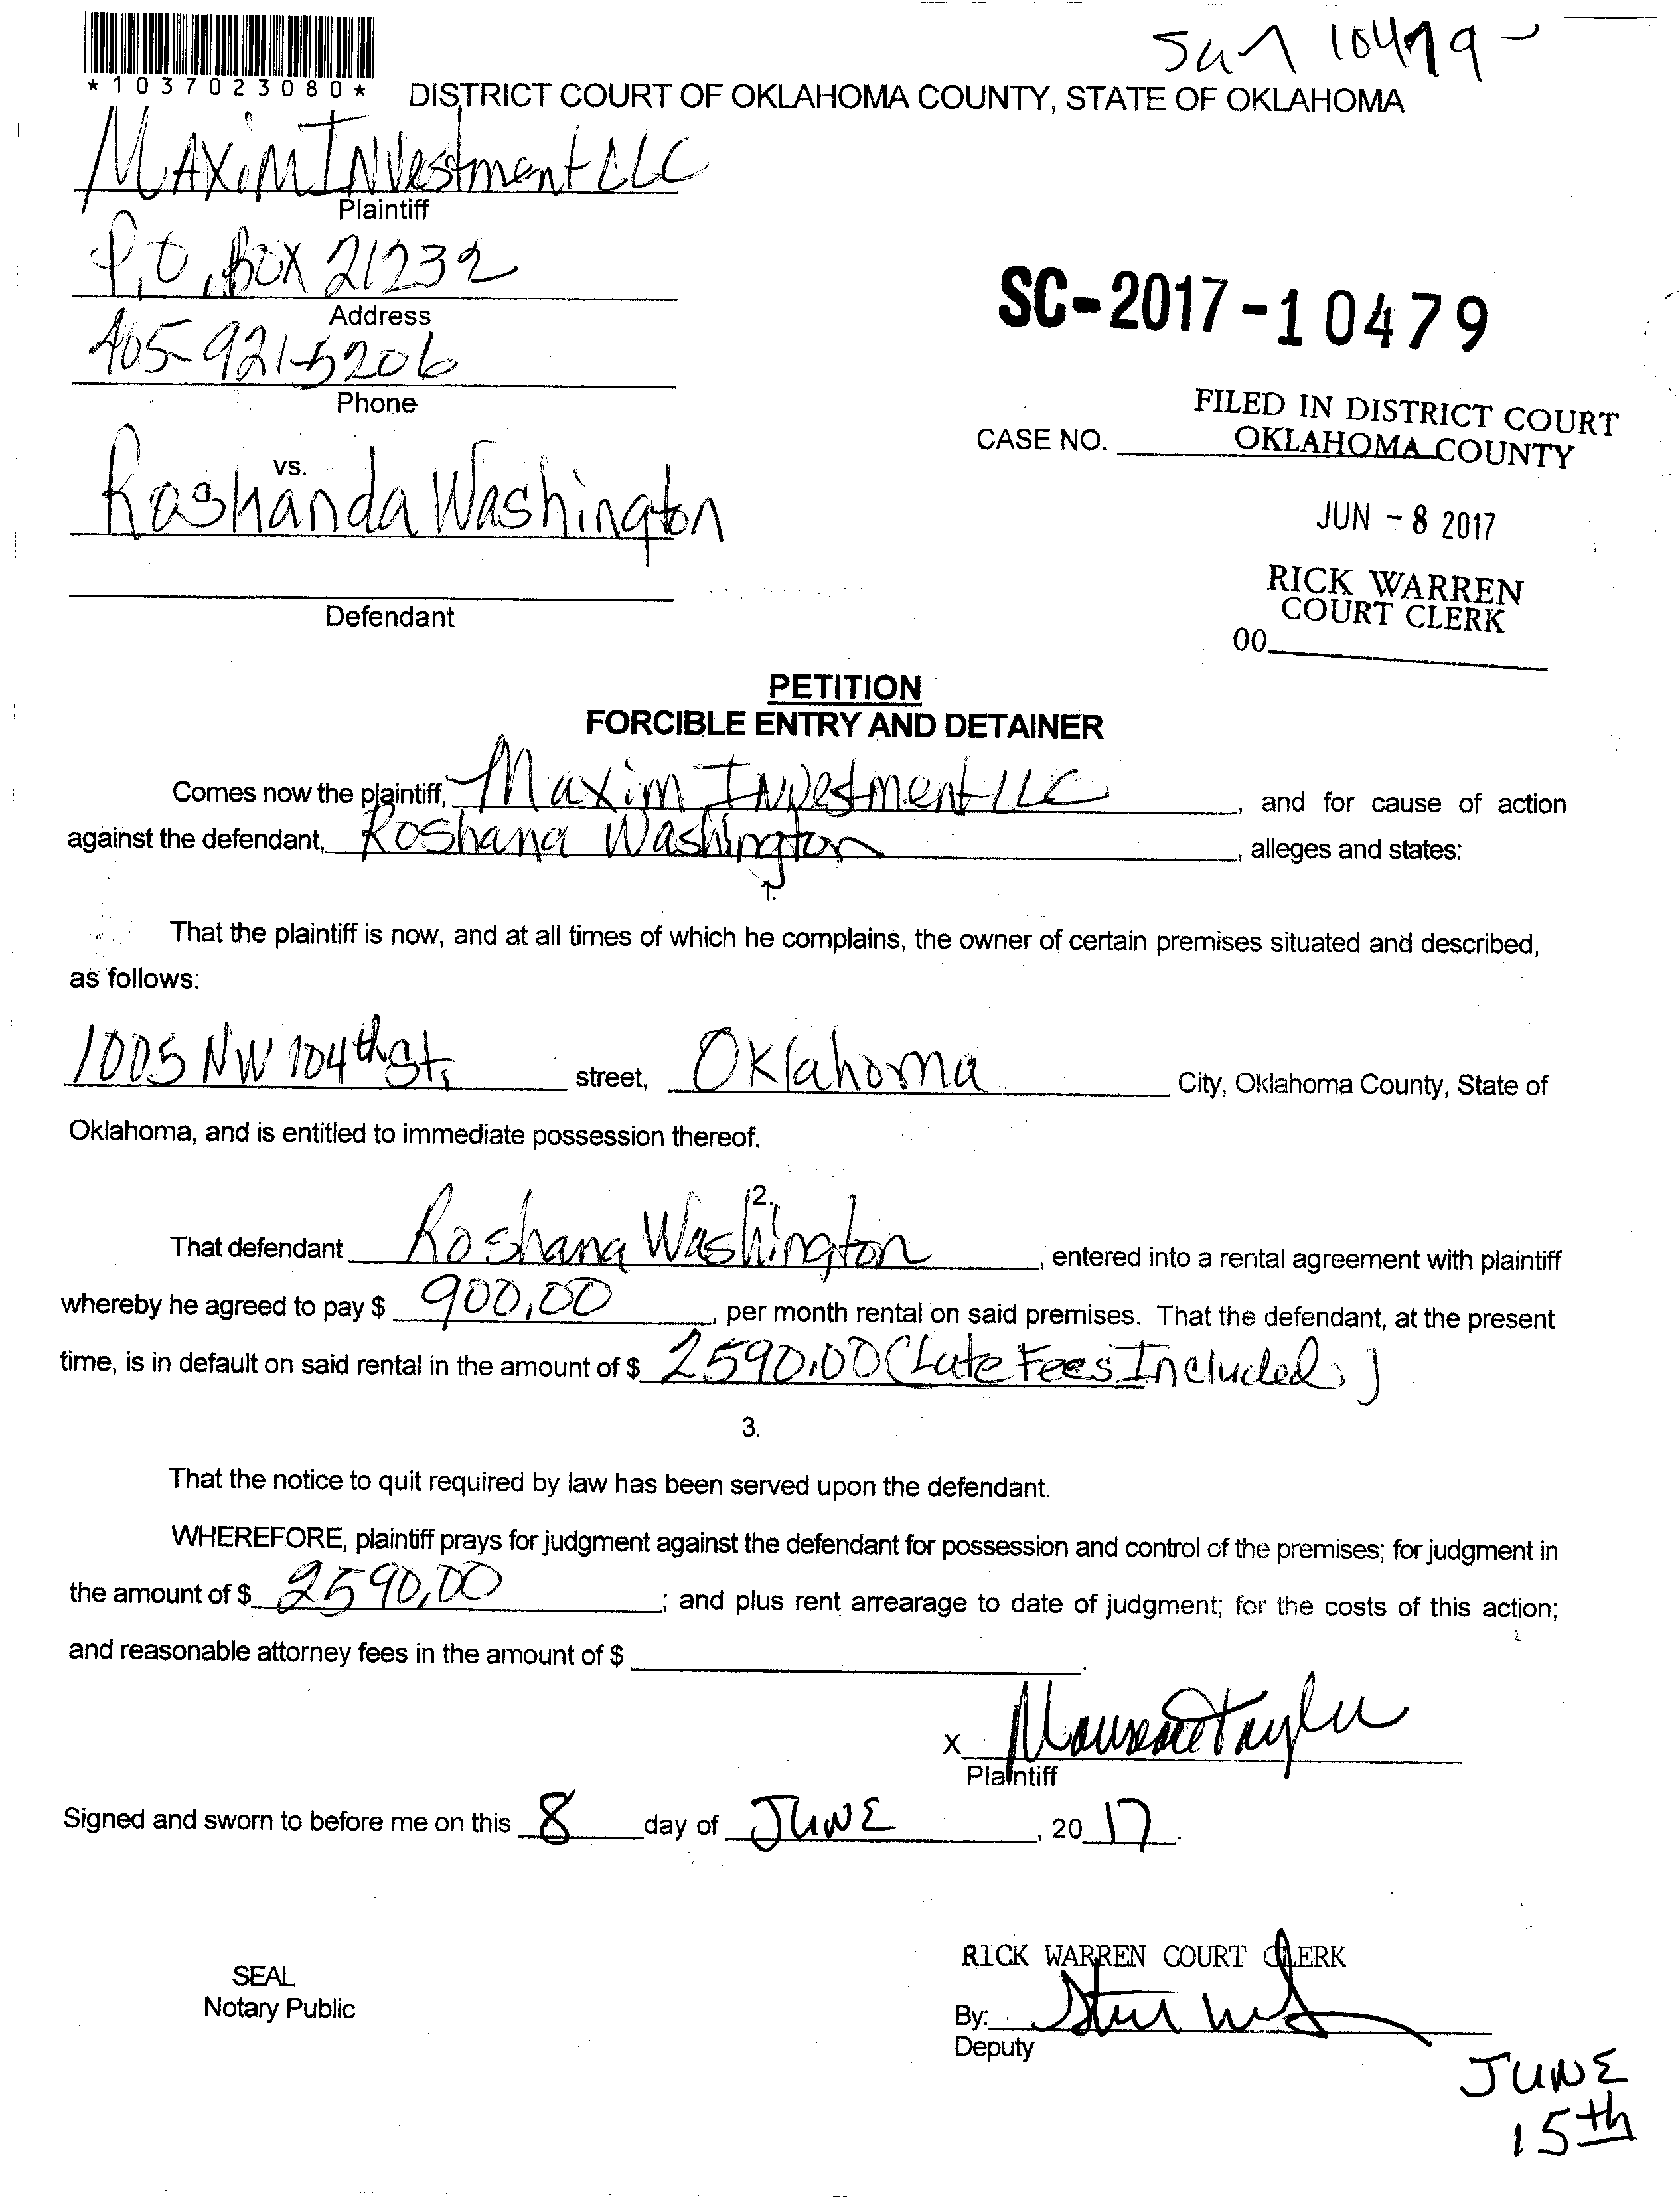 *1037023080*
10479
DISTRICT COURT OF OKLAHOMA COUNTY, STATE OF OKLAHOMA
MAXIM INVestment LLC
Plaintiff
P.O. BOX 21232
Address
405-921-5206
Phone
SC-2017-10479
FILED IN DISTRICT COURT
CASE NO. OKLAHOMA COUNTY
vs.
Roshanda Washington
JUN - 8 2017
RICK WARREN
COURT CLERK
Defendant
00
PETITION
FORCIBLE ENTRY AND DETAINER
Comes now the plaintiff, Maxim INvestment LLC, and for cause of action
against the defendant, Roshana Washington, alleges and states:
1.
That the plaintiff is now, and at all times of which he complains, the owner of certain premises situated and described,
as follows:
1005 NW 104th St, street, Oklahoma City, Oklahoma County, State of
Oklahoma, and is entitled to immediate possession thereof.
2.
That defendant Roshana Washington, entered into a rental agreement with plaintiff
whereby he agreed to pay $ 900.00, per month rental on said premises. That the defendant, at the present
time, is in default on said rental in the amount of $ 2590.00 (Late Fees Included.)
3.
That the notice to quit required by law has been served upon the defendant.
WHEREFORE, plaintiff prays for judgment against the defendant for possession and control of the premises; for judgment in
the amount of $ 2590.00; and plus rent arrearage to date of judgment; for the costs of this action;
and reasonable attorney fees in the amount of $ .
X
Plaintiff
Signed and sworn to before me on this 8 day of JUNE, 20 17.
RICK WARREN COURT CLERK
SEAL
Notary Public
By:
Deputy
JUNE
15th